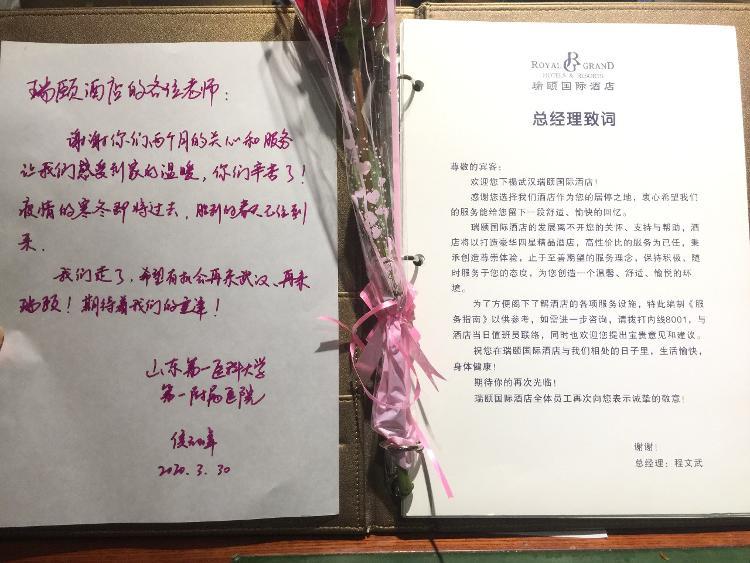 瑞颐酒店的各位老师：
谢谢你们两个月的关心和服务
让我们感受到家的温暖，你们辛苦了！
疫情的寒冬即将过去，胜利的春天已经到
来。
我们走了，希望有机会再来武汉、再来
瑞颐！期待着我们的重逢！
山东第一医科大学
第一附属医院
2020.3.30
ROYAL GRAND
HOTELS & RESORTS
瑞颐国际酒店
总经理致词
尊敬的宾客：
欢迎您下榻武汉瑞颐国际酒店！
感谢您选择我们酒店作为您的居停之地，衷心希望我们
的服务能给您留下一段舒适、愉快的回忆。
瑞颐国际酒店的发展离不开您的关怀、支持与帮助，酒
店将以打造豪华四星精品酒店，高性价比的服务为己任，秉
承创造尊崇体验，止于至善期望的服务理念，保持积极、随
时服务于您的态度，为您创造一个温馨、舒适、愉悦的环
境。
为了方便阁下了解酒店的各项服务设施，特此编制《服
务指南》以供参考，如需进一步咨询，请拨打内线8001，与
酒店当日值班员联络，同时也欢迎您提出宝贵意见和建议。
祝您在瑞颐国际酒店与我们相处的日子里，生活愉快，
身体健康！
期待你的再次光临！
瑞颐国际酒店全体员工再次向您表示诚挚的敬意！
谢谢！
总经理：程文武